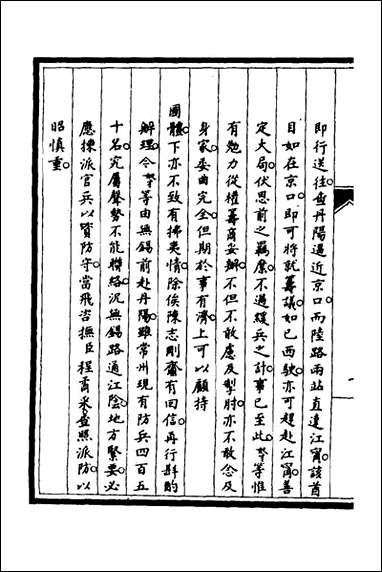 即行送往。蓋丹陽逼近京口。而陸路兩站直達江甯。該首
目如在京口。即可將就籌議。如已西駛。亦可趕赴江甯。善
定大局。伏思前之羈縻。不過緩兵之計。事已至此。等惟
有勉力從權籌商妥辦。不但不敢慮及掣肘。亦不敢念及
身家。委曲完全。但期於事有濟。上可以顧持
國體。下亦不致有拂夷情。除俟陳志剛齎有回信。再行斟酌
辦理。今等由無錫前赴丹陽。雖常州現有防兵四百五
十名。究屬聲勢不能聯絡。況無錫路通江陰。地方緊要。必
應揀派官兵以資防守。當飛咨撫臣程矞采查照派防。以
昭慎重。